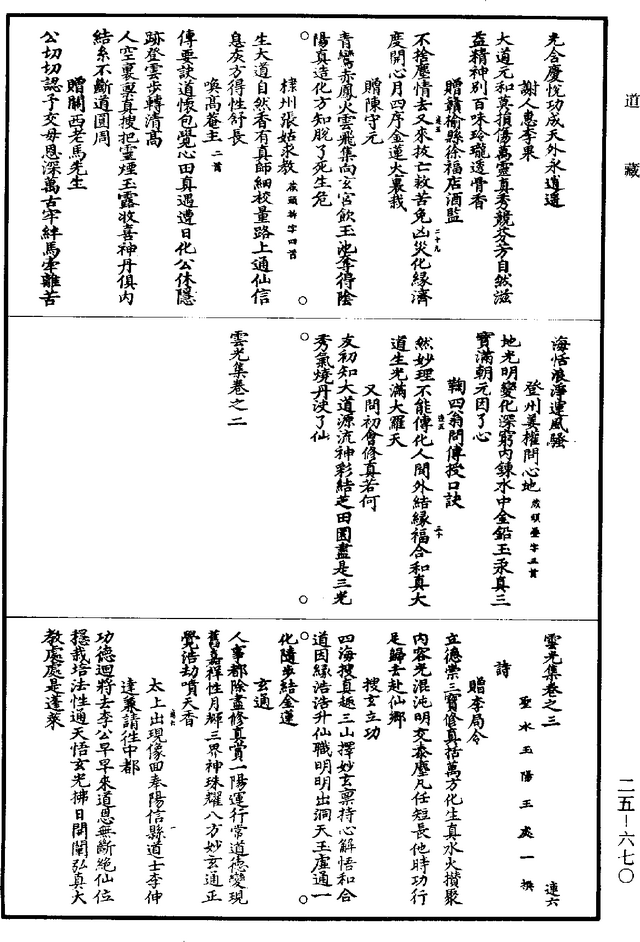 道藏
光含慶悅功成天外永逍遥
謝人惠李果
大道元和莫損傷萬靈真秀競芬芳自然滋
益精神別百味玲瓏透骨香
贈贛榆縣徐福店酒監
不捨塵情去又來救亡救苦免凶災化緣濟
度開心月四序金蓮火裏栽
贈陳守元
青鸞赤鳳火雲飛集向玄宮飲玉池奪得陰
陽真造化方知脫了死生危
棣州張姑求教 藏頭拆字四首
生大道自然香有真師細校量路上通仙信
息灰方得性舒長
喚髙菴主 二首
傳要訣道懷包覺心田真遇遭日化公休隱
跡登雲步轉清髙
人空裏覔真搜把靈煙玉露收喜神丹俱內
結系不斷道圓周
贈關西老馬先生
公切切認子交毋恩深萬古牢絆馬牽離苦
海恬浪淨運風騷
登州姜權問心地 藏頭疊字五首
地光明變化深窮內鍊水中金鉛玉汞真三
寶滿朝元因了心
鞠四翁問傳授口訣
然妙理不能傳化人間外結緣福合和真大
道生光滿大羅天
又問初會修真若何
友初知大道源流神彩結芝田園盡是三光
秀氣燒丹決了仙
雲光集卷之二
雲光集卷之三 連六
聖水玉陽王處一撰
詩
贈李局令
立德崇三寶修真括萬方化生真水火攢聚
內容光混沌明交泰塵凡任短長他時功行
足歸去赴仙鄉
搜玄立功
四海搜真趣三山擇妙玄禀持心解悟和合
道因緣浩浩升仙職明明出洞天玉虛通一
化隨步結金蓮
玄通
人事都除盡修真賞一陽運行常道德變現
舊嘉祥性月輝三界神珠耀八方妙玄通正
覺浩劫噴天香
太上出現像面奉陽信縣道士李伸
達兼請住中都
功德迴將去李公早早來道恩無斷絕仙位
穏栽培法性通天悟玄光拂日開闡弘真大
教處處是蓬萊
二五—六七〇